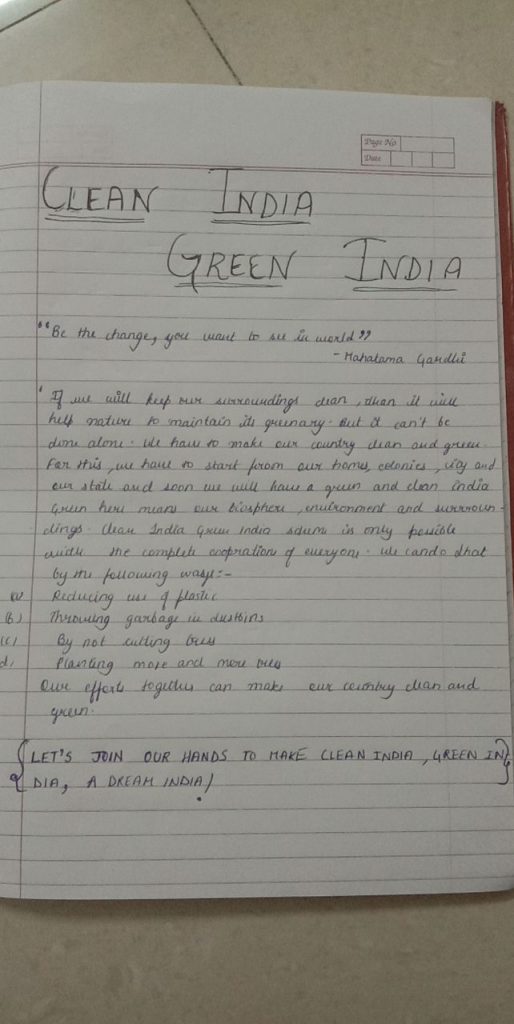 Page No.
Date
CLEAN INDIA
GREEN INDIA
"Be the change, you want to see in world"
- Mahatama Gandhi
If we will keep our surroundings clean, than it will
help nature to maintain its greenary. But it can't be
done alone. We have to make our country clean and green.
For this, we have to start from our homes, colonies, city and
our state and soon we will have a green and clean india
Green here means our biosphere, environment and surroun-
dings. Clean India Green India scheme is only possible
with the complete cooperation of everyone. We can do that
by the following ways:-
(a) Reducing use of plastic
(b) Throwing garbage in dustbins
(c) By not cutting trees
d) Planting more and more trees
Our efforts together can make our country clean and
green.
{LET'S JOIN OUR HANDS TO MAKE CLEAN INDIA, GREEN IN}
{DIA, A DREAM INDIA!}